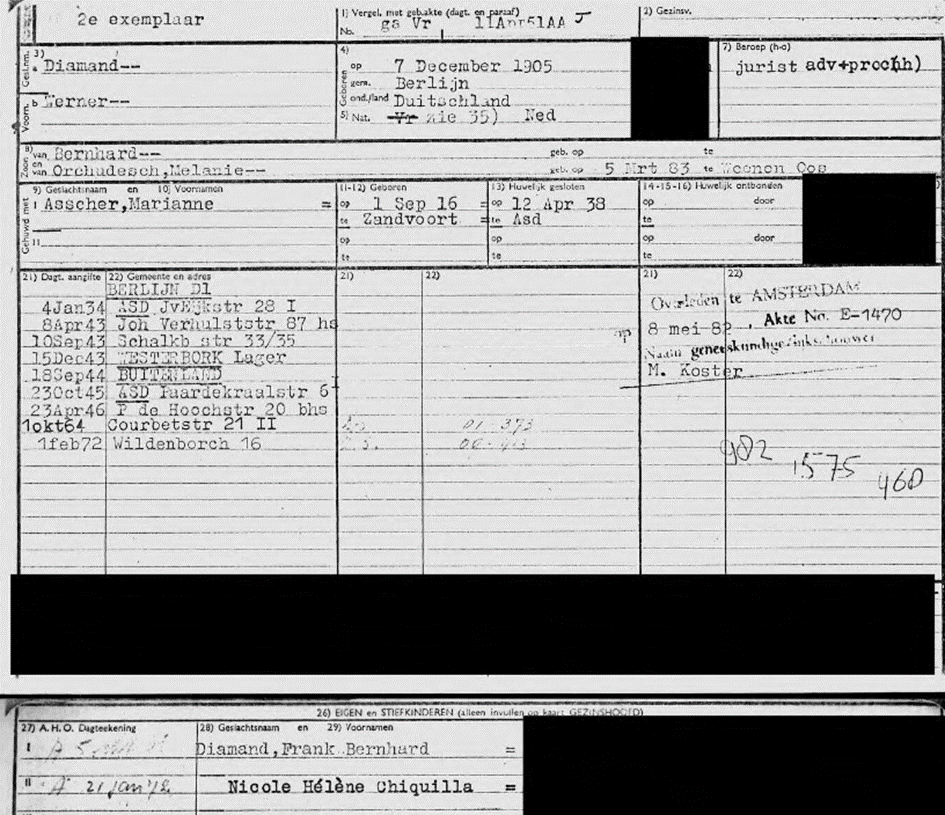 2e exemplaar
1) Vergel. met geb.akte (dagt. en paraaf)
ga Vr 11Apr51AA J
No.
2) Gezinsv.
3)
Gesl.nm. a Diamand--
Voorn. b Werner--
4)
Geboren op 7 December 1905
gem. Berlijn
ond./land Duitschland
5) Nat. Vr zie 35) Ned
7) Beroep (h-o)
jurist adv+proc(hh)
8) Zoon van Bernhard-- geb. op te
en van Orchudesch,Melanie-- geb. op 5 Mrt 83 te Weenen Oos
Gehuwd met
9) Geslachtsnaam en 10) Voornamen
11-12) Geboren
13) Huwelijk gesloten
14-15-16) Huwelijk ontbonden
I Asscher,Marianne = op 1 Sep 16 = op 12 Apr 38 op door
te Zandvoort = te Asd te
II op op op door
te te te
21) Dagt. aangifte 22) Gemeente en adres 21) 22) 21) 22)
BERLIJN D1
4Jan34 ASD JvEijkstr 28 I
8Apr43 Joh Verhulststr 87 hs
10Sep43 Schalkb str 33/35
15Dec43 WESTERBORK Lager
18Sep44 BUITENLAND
23Oct45 ASD Paardekraalstr 6
23Apr46 P de Hoochstr 20 bhs
1okt64 Courbetstr 21 II 01-373
1feb72 Wildenborch 16
Overleden te AMSTERDAM
op 8 mei 82, Akte No. E-1470
Naam geneeskundige/lijkschouwer
M. Koster
982 1575 460
26) EIGEN en STIEFKINDEREN (alleen invullen op kaart GEZINSHOOFD)
27) A.H.O. Dagteekening 28) Geslachtsnaam en 29) Voornamen
I A 5 Diamand,Frank Bernhard =
II A 21 jan 72 Nicole Hélène Chiquilla =